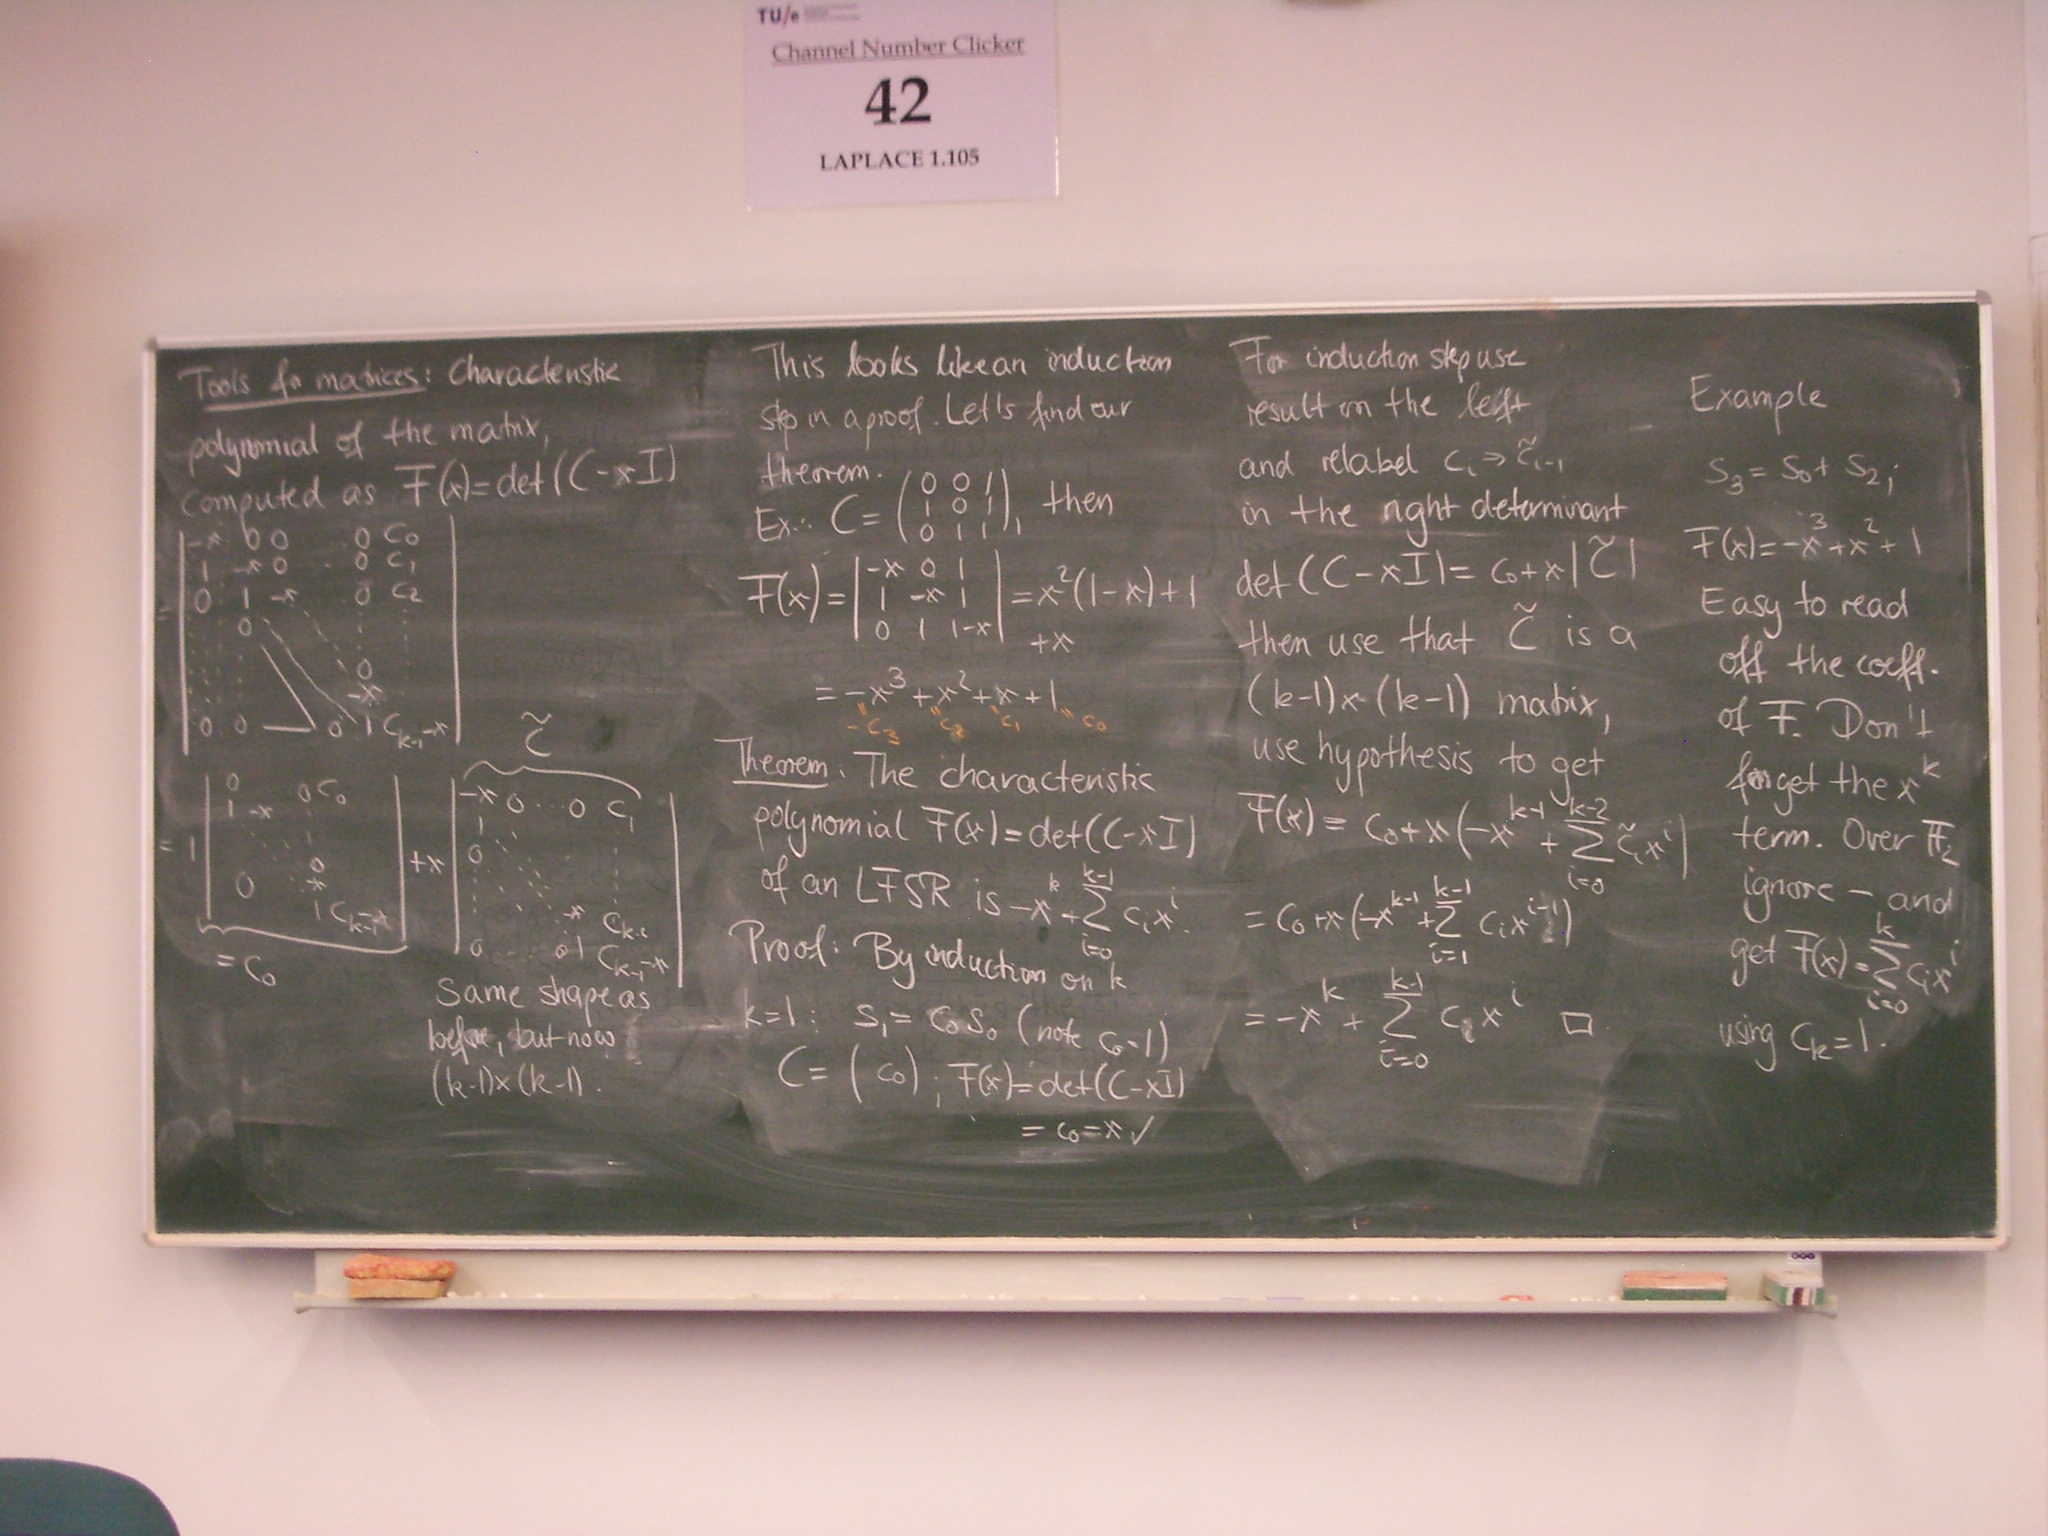 TU/e
Channel Number Clicker
42
LAPLACE 1.105
Tools for matrices: Characteristic
polynomial of the matrix,
computed as F(x)=det(C-xI)
-x 0 0 0 c₀
1 -x 0 ... 0 c₁
= 0 1 -x 0 c₂
0
0
-x
0 0 0 1 c_{k-1}-x
C̃
0 0 c₀
1 -x
= 1
0
0 -x
1 c_{k-1}-x
= c₀
+x
-x 0 ... 0 c₁
1
0
-x c_{k-2}
0 0 1 c_{k-1}-x
Same shape as
before, but now
(k-1)x(k-1).
This looks like an induction
step in a proof. Let's find our
theorem.
Ex.: C = (0 0 1
1 0 1
0 1 1), then
F(x) = |-x 0 1
1 -x 1
0 1 1-x| = x²(1-x)+1
+x
= -x³+x²+x+1
-c₃ c₂ c₁ c₀
Theorem. The characteristic
polynomial F(x)=det(C-xI)
of an LFSR is -x^k + Σ_{i=0}^{k-1} c_i x^i.
Proof: By induction on k
k=1: s₁ = c₀s₀ (note c₀=1)
C = (c₀); F(x)=det(C-xI)
= c₀-x ✓
For induction step use
result on the left
and relabel c_i → c̃_{i-1}
in the right determinant
det(C-xI) = c₀+x|C̃|
then use that C̃ is a
(k-1)x(k-1) matrix,
use hypothesis to get
F(x) = c₀+x(-x^{k-1} + Σ_{i=0}^{k-2} c̃_i x^i)
= c₀+x(-x^{k-1} + Σ_{i=1}^{k-1} c_i x^{i-1})
= -x^k + Σ_{i=0}^{k-1} c_i x^i □
Example
s₃ = s₀+s₂;
F(x)=-x³+x²+1
Easy to read
off the coeff.
of F. Don't
forget the x^k
term. Over F₂
ignore - and
get F(x)=Σ_{i=0}^{k} c_i x^i
using c_k=1.